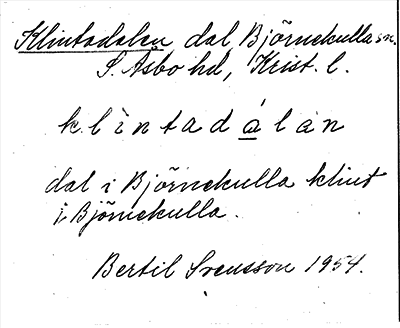 Klintadalen dal, Björnekulla sn.
S. Åsbo hd, Krist. l.
klìntadálan
dal i Björnekulla klint
i Björnekulla.
Bertil Svensson 1954.